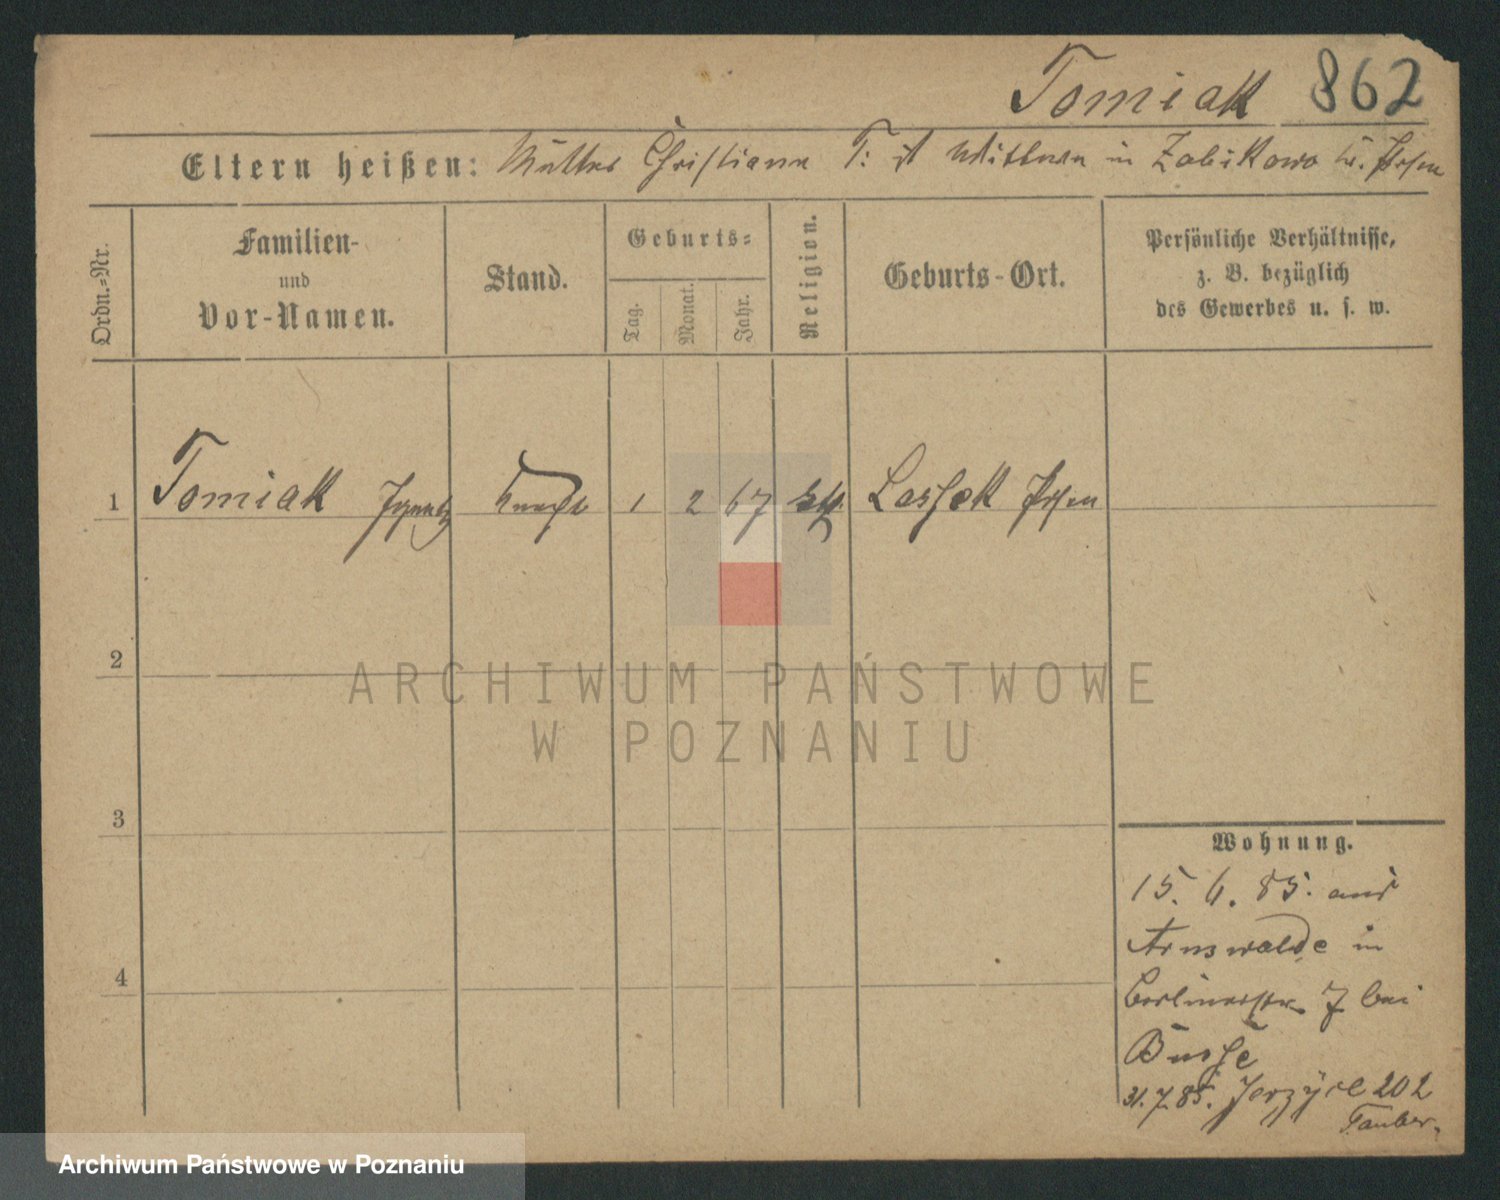 Tomiak 862
Eltern heißen: Mutter Christiana T. ist Wittwe in Zabikowo Kr. Posen
Ordn.-Nr.
Familien-
und
Vor-Namen.
Stand.
Geburts-
Tag.
Monat.
Jahr.
Religion.
Geburts-Ort.
Persönliche Verhältnisse,
z. B. bezüglich
des Gewerbes u. s. w.
1 Tomiak Ignatz Knecht 1 2 67 kth. Lassek Posen
2
3
4
Wohnung.
15. 6. 85. aus
Arnswalde in
Berlinerstr. 7 bei
Busse
31. 7. 85. Jerzyce 202
Tauber.
ARCHIWUM PAŃSTWOWE
W POZNANIU
Archiwum Państwowe w Poznaniu